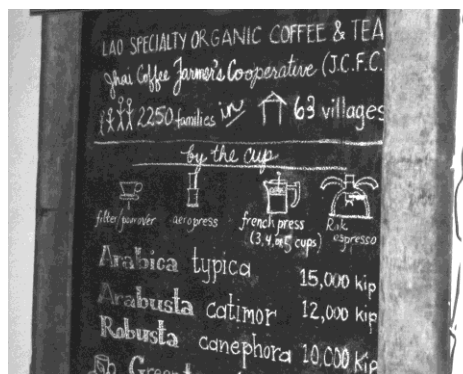 LAO SPECIALTY ORGANIC COFFEE & TEA
Jhai Coffee Farmer's Cooperative (J.C.F.C.
2250 families in 63 villages
by the cup
filter/pourover aeropress french press Rok espresso
(3,4, or 5 cups)
Arabica typica 15,000 kip
Arabusta catimor 12,000 kip
Robusta canephora 10,000 Kip
Green